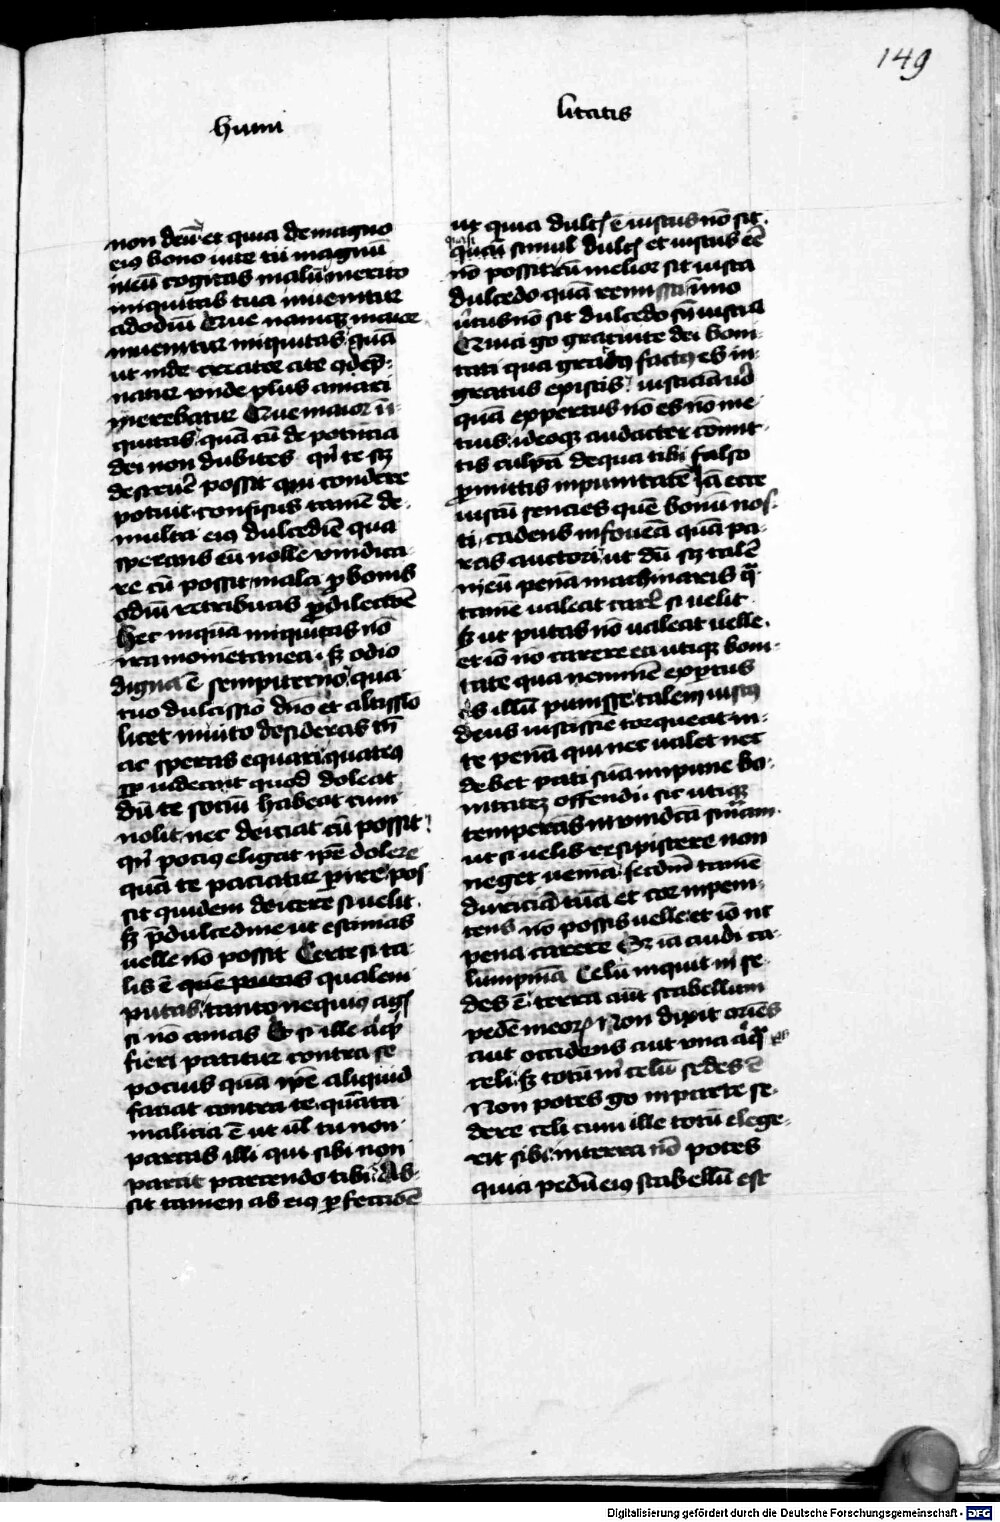 149
humi
litatis
non deū et quia de magno
eiꝰ bono uite tū magnū
meū cogitas malū merito
iniquitas tua inuenitur
ad odiū Que namqꝫ maior
inuenitur iniquitas quā
ut inde creator a te
natur vnde plus amari
merebatur Que maior ī
quitas quā cū de potētia
dei non dubites qn̄ te sꝫ
destruē possit qui condere
potuit confisus tamē de
multa eiꝰ dulcedīe qua
sperans eū nolle vindica
re cū possit mala ꝓ bonis
odiū retribuas ꝓ dilectōē
Hec inquā iniquitas nō
ira mometanea sꝫ odio
digna ē sempiterno qua
tuo dulcissīō dn̄o et altissīō
licet inuito desideras tn̄
ac speras equari quatenꝰ
iudeat quod doleat
dū te sociū habeat cum
nolit nec deiciat cū possit
qn̄ pociꝰ eligat ip̄e dolere
quā te paciatur ꝑire pos
sit quidem deicere si uelit
sꝫ p̄ dulcedine ut estimas
uelle nō possit Certe si ta
lis ē quē putas qualem
putas tanto nequiꝰ agis
si nō amas Et si ille
fieri patitur contra se
pocius quā ip̄e aliquid
faciat contra te quāta
malicia ē ut ul̄ tu non
parcas illi qui sibi non
parcit parcendo tibi Ab
sit tamen ab eiꝰ ꝑfectiōē
ut quia dulcis ē iustus nō sit
quasi
quā simul dulcis et iustus eē
nō possit cū melior sit iusta
dulcedo quā remissa īmo
ūtus nō sit dulcedo sn̄ iusticia
Quia go gratuite dei boni
tati qua gratis factꝰ es in
gratus existis iusticiā uō
quā expertus nō es nō me
tuis ideoqꝫ audacter comit
tis culpā de qua tibi falso
ꝓmittis inpunitatē Iā ecce
iustū sencies quē bonū nos
ti cadens in foueā quā pa
ras auctori ut dū sꝫ talē
meū penā machinaris q̄
tamē ualeat carē si uelit
sꝫ ut putas nō ualeat uelle
et iō nō carere ea utiqꝫ boni
tate qua neminē exꝑtus
es illū punisse talem iustꝰ
deus iustissīe torqueat in
te penā qui nec ualet nec
debet pati suā inpune bo
nitatē offendi sic utiqꝫ
temperans in vindictā sn̄iam
ut si uelis resipiscere non
neget uenia secdm̄ tamē
duriciā tuā et cor inpeni
tens nō possis uelle et iō nt
pena carere Sꝫ iā audi ca
lumpniā Celū inquit m̄ se
des ē terra aūt scabellum
pedē meoꝝ Non dixit oriēs
aut occidens aut vna
celi sꝫ totū m̄ celū sedes ē
Non potes go inparte se
dere celi cum ille totū elege
rit sibi in terra nō potes
quia pedū eiꝰ scabellū est
Digitalisierung gefördert durch die Deutsche Forschungsgemeinschaft - DFG